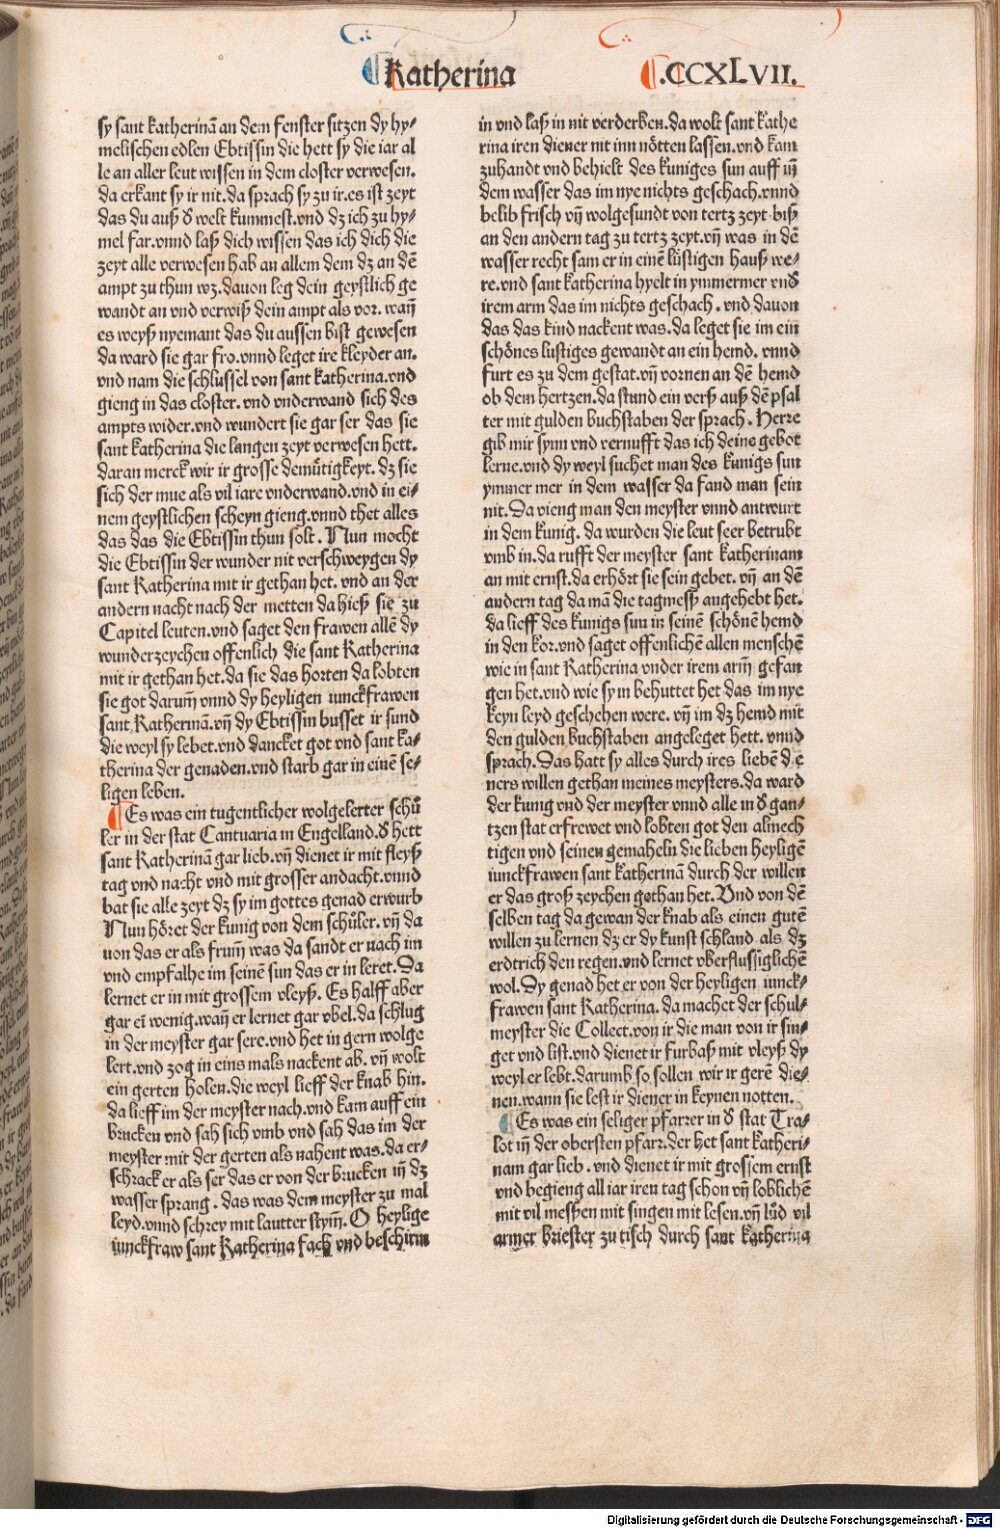 Katherina
.CCXLVII.
sy sant katherinā an dem fenster sitzen dy hy⸗
melischen edlen Ebtissin die hett sy die iar al
le an aller leut wissen in dem closter verwesen.
da erkant sy ir nit.da sprach sy zu ir.es ist zeyt
das du auß d̕ welt kummest.vnd dz ich zu hy⸗
mel far.vnnd laß dich wissen das ich dich die
zeyt alle verwesen hab an allem dem dz an dē
ampt zu thun wz.dauon leg dein geystlich ge
wandt an vnd verwiß dein ampt als vor. wañ
es weyß nyemant das du aussen bist gewesen
da ward sie gar fro.vnnd leget ire kleyder an.
vnd nam die schlussel von sant katherina.vnd
gieng in das closter. vnd vnderwand sich des
ampts wider.vnd wundert sie gar ser das sie
sant katherina die langen zeyt verwesen hett.
daran merck wir ir grosse demůtigkeyt. dz sie
sich der mue als vil iare vnderwand.vnd in ei⸗
nem geystlichen scheyn gieng.vnnd thet alles
das das die Ebtissin thun solt. Nun mocht
die Ebtissin der wunder nit verschweygen dy
sant Katherina mit ir gethan het. vnd an der
andern nacht nach der metten da hieß sie zu
Capitel leuten.vnd saget den frawen allē dy
wunderzeychen offenlich die sant Katherina
mit ir gethan het.da sie das horten da lobten
sie got darum̄ vnnd dy heyligen iunckfrawen
sant Katherinā.vn̄ dy Ebtissin busset ir sund
die weyl sy lebet.vnd dancket got vnd sant ka⸗
therina der genaden.vnd starb gar in einē se⸗
ligen leben.
Es was ein tugentlicher wolgelerter schů
ler in der stat Cantuaria in Engelland.d̕ hett
sant Katherinā gar lieb.vn̄ dienet ir mit fleyß
tag vnd nacht vnd mit grosser andacht.vnnd
bat sie alle zeyt dz sy im gottes genad erwurb
Nun hôret der kunig von dem schůler. vn̄ da
uon das er als frum̄ was da sandt er nach im
vnd empfalhe im seinē sun das er in leret.Da
lernet er in mit grossem vleyß. Es halff aber
gar eī wenig.wañ er lernet gar vbel.da schlug
in der meyster gar sere.vnd het in gern wolge
lert.vnd zog in eins mals nackent ab. vn̄ wolt
ein gerten holen.die weyl lieff der knab hin.
da lieff im der meyster nach.vnd kam auff ein
brucken vnd sah sich vmb vnd sah das im der
meyster mit der gerten als nahent was.da er⸗
schrack er als ser das er von der brucken in̄ dz
wasser sprang. das was dem meyster zu mal
leyd.vnnd schrey mit lautter stym̄. O heylige
iunckfraw sant Katherina fach vnd beschirm
in vnd laß in nit verderben.da wolt sant kathe
rina iren diener nit inn nôtten lassen.vnd kam
zuhandt vnd behielt des kuniges sun auff in̄
dem wasser das im nye nichts geschach.vnnd
belib frisch vn̄ wolgesundt von tertz zeyt biß
an den andern tag zu tertz zeyt.vn̄ was in dē
wasser recht sam er in einē lůstigen hauß we⸗
re.vnd sant katherina hyelt in ymmermer vnd̕
irem arm das im nichts geschach. vnd dauon
das das kind nackent was.da leget sie im ein
schônes lustiges gewandt an ein hemd. vnnd
furt es zu dem gestat.vn̄ vornen an dē hemd
ob dem hertzen.da stund ein verß auß dē psal
ter mit gulden buchstaben der sprach. Herre
gib mir synn vnd vernufft das ich deine gebot
lerne.vnd dy weyl suchet man des kunigs sun
ymmer mer in dem wasser da fand man sein
nit.Da vieng man den meyster vnnd antwurt
in dem kunig. da wurden die leut seer betrubt
vmb in.da rufft der meyster sant katherinam
an mit ernst.da erhôrt sie sein gebet. vn̄ an dē
andern tag da mā die tagmeß angehebt het.
da lieff des kunigs sun in seinē schônē hemd
in den kor.vnd saget offenlichē allen menschē
wie in sant Katherina vnder irem arm̄ gefan
gen het.vnd wie sy in behuttet het das im nye
keyn leyd geschehen were. vn̄ im dz hemd mit
den gulden buchstaben angeleget hett. vnnd
sprach.Das hatt sy alles durch ires liebē d e
ners willen gethan meines meysters.da ward
der kunig vnd der meyster vnnd alle in d̕ gan⸗
tzen stat erfrewet vnd lobten got den almech
tigen vnd seinen gemaheln die lieben heyligē
iunckfrawen sant katherinā durch der willen
er das groß zeychen gethan het. Vnd von dē
selben tag da gewan der knab als einen gutē
willen zu lernen dz er dy kunst schland als dz
erdtrich den regen.vnd lernet vberflussiglichē
wol.Dy genad het er von der heyligen iunck⸗
frawen sant Katherina. da machet der schul⸗
meyster die Collect.von ir die man von ir sin⸗
get vnd list.vnd dienet ir furbaß mit vleyß dy
weyl er lebt.darumb so sollen wir ir gerē die⸗
nen.wann sie lest ir diener in keynen notten.
Es was ein seliger pfarrer in d̕ stat Tra⸗
lot in̄ der obersten pfarr.der het sant katheri⸗
nam gar lieb. vnd dienet ir mit grossem ernst
vnd begieng all iar iren tag schon vn̄ loblichē
mit vil messen mit singen mit lesen.vn̄ lud̄ vil
armer briester zu tisch durch sant katherina
Digitalisierung gefördert durch die Deutsche Forschungsgemeinschaft - DFG